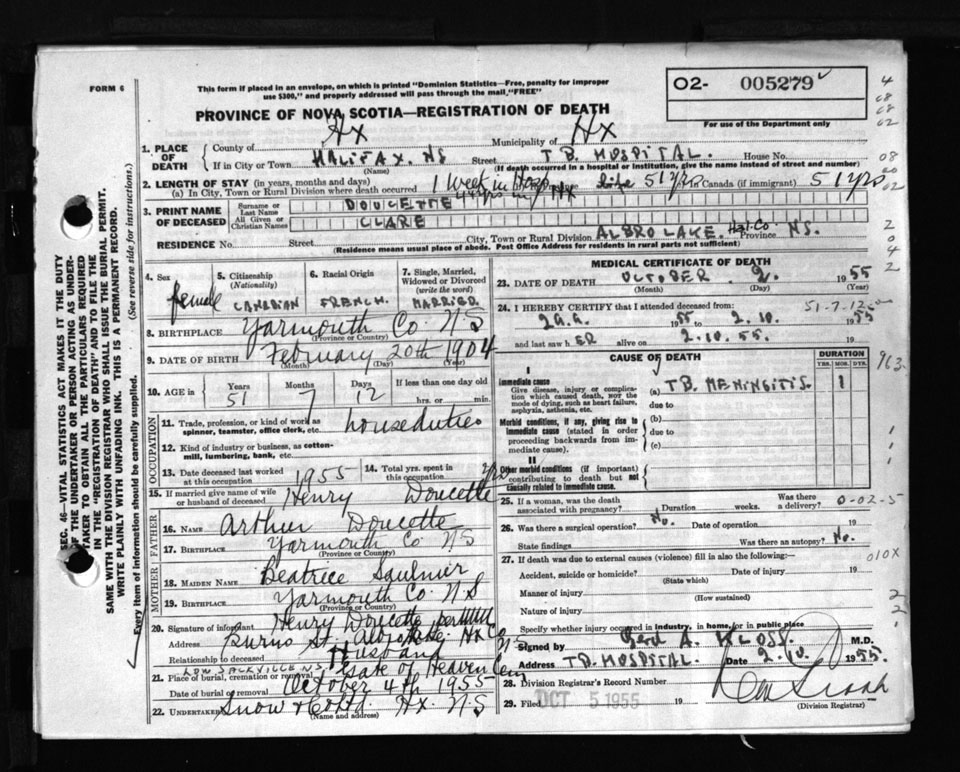 FORM 6
This form if placed in an envelope, on which is printed "Dominion Statistics—Free, penalty for improper
use $300," and properly addressed will pass through the mail, "FREE"
O2- 005279
For use of the Department only
PROVINCE OF NOVA SCOTIA—REGISTRATION OF DEATH
1. PLACE OF DEATH
County of Hx Municipality of Hx
If in City or Town HALIFAX. NS Street TB. HOSPITAL. House No.
(Name) (If death occurred in a hospital or institution, give the name instead of street and number)
2. LENGTH OF STAY (in years, months and days)
(a) In City, Town or Rural Division where death occurred 1 Week in Hosp life 51 yrs In Canada (if immigrant) 51 yrs
3. PRINT NAME OF DECEASED
Surname or Last Name DOUCETTE
All Given or Christian Names CLARE
RESIDENCE No. Street City, Town or Rural Division ALBRO LAKE. Hal. Co Province NS.
(Residence means usual place of abode. Post Office Address for residents in rural parts not sufficient)
4. Sex female
5. Citizenship (Nationality) CANADIAN
6. Racial Origin FRENCH.
7. Single, Married, Widowed or Divorced (write the word) MARRIED
8. BIRTHPLACE Yarmouth Co. N S
(Province or Country)
9. DATE OF BIRTH February 20th 1904
(Month) (Day) (Year)
10. AGE in Years 51 Months 7 Days 12 If less than one day old hrs. or min.
OCCUPATION
11. Trade, profession, or kind of work as spinner, teamster, office clerk, etc. houseduties
12. Kind of industry or business, as cotton-mill, lumbering, bank, etc.
13. Date deceased last worked at this occupation 1955
14. Total yrs. spent in this occupation yrs
15. If married give name of wife or husband of deceased Henry Doucette
FATHER
16. NAME Arthur Doucette
17. BIRTHPLACE Yarmouth Co N S
(Province or Country)
MOTHER
18. MAIDEN NAME Beatrice Saulnier
19. BIRTHPLACE Yarmouth Co. N S
(Province or Country)
20. Signature of informant Henry Doucette
Address Burns St. Albro Lake. Hx Co N S
Relationship to deceased Husband
LOW SACKVILLE NS
21. Place of burial, cremation or removal Gate of Heaven Cem
Date of burial or removal October 4th 1955
22. UNDERTAKER Snow & Co Ltd. Hx. N S
(Name and address)
MEDICAL CERTIFICATE OF DEATH
23. DATE OF DEATH OCTOBER 2. 1955
(Month) (Day) (Year)
24. I HEREBY CERTIFY that I attended deceased from: 51-7-12
1955 to 2.10. 1955
and last saw h ER alive on 2.10.55. 19
CAUSE OF DEATH
DURATION
YRS. MOS. DYS.
I
Immediate cause
Give disease, injury or complication which caused death, not the mode of dying, such as heart failure, asphyxia, asthenia, etc.
(a) TB. MENINGITIS. 1
due to
Morbid conditions, if any, giving rise to immediate cause (stated in order proceeding backwards from immediate cause).
(b)
due to
(c)
II
Other morbid conditions (if important) contributing to death but not causally related to immediate cause.
25. If a woman, was the death associated with pregnancy? Duration weeks. Was there a delivery? 0-02-5
26. Was there a surgical operation? No. Date of operation 19
State findings Was there an autopsy? No.
27. If death was due to external causes (violence) fill in also the following:— 010X
Accident, suicide or homicide? Date of injury 19
(State which)
Manner of injury
(How sustained)
Nature of injury
Specify whether injury occurred in industry, in home, or in public place
Signed Gerd A. KLOSS. M.D.
Address TB. HOSPITAL. Date 2.10. 1955.
28. Division Registrar's Record Number
29. Filed OCT 5 1955 19
(Division Registrar)
SEC. 46—VITAL STATISTICS ACT MAKES IT THE DUTY
OF THE UNDERTAKER OR PERSON ACTING AS UNDER-
TAKER TO OBTAIN ALL THE PARTICULARS REQUIRED
IN THE "REGISTRATION OF DEATH" AND TO FILE THE
SAME WITH THE DIVISION REGISTRAR WHO SHALL ISSUE THE BURIAL PERMIT.
WRITE PLAINLY WITH UNFADING INK. THIS IS A PERMANENT RECORD.
Every item of information should be carefully supplied. (See reverse side for instructions.)